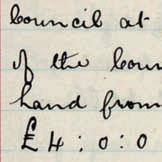 Council at
of the Coun
hand from
£4:0:0